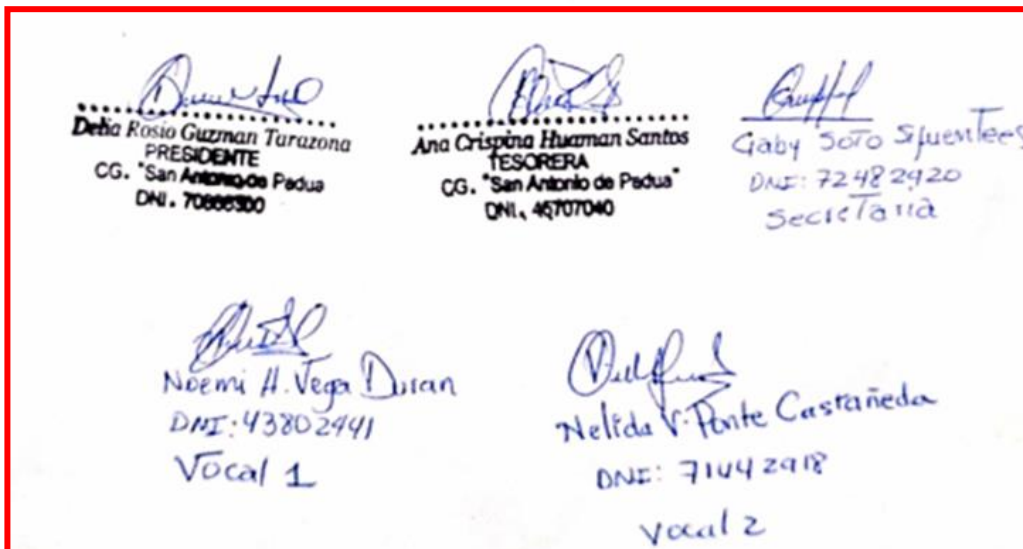 Delia Rosio Guzman Tarazona
PRESIDENTE
CG. "San Antonio de Padua
DNI.
Ana Crispina Huaman Santos
TESORERA
CG. "San Antonio de Padua"
DNI. 46707040
Gaby Soto Sifuentees
DNI: 72482920
Secretaria
Noemi H. Vega Duran
DNI: 43802441
Vocal 1
Nelida V. Ponte Castañeda
DNI: 71442918
Vocal 2